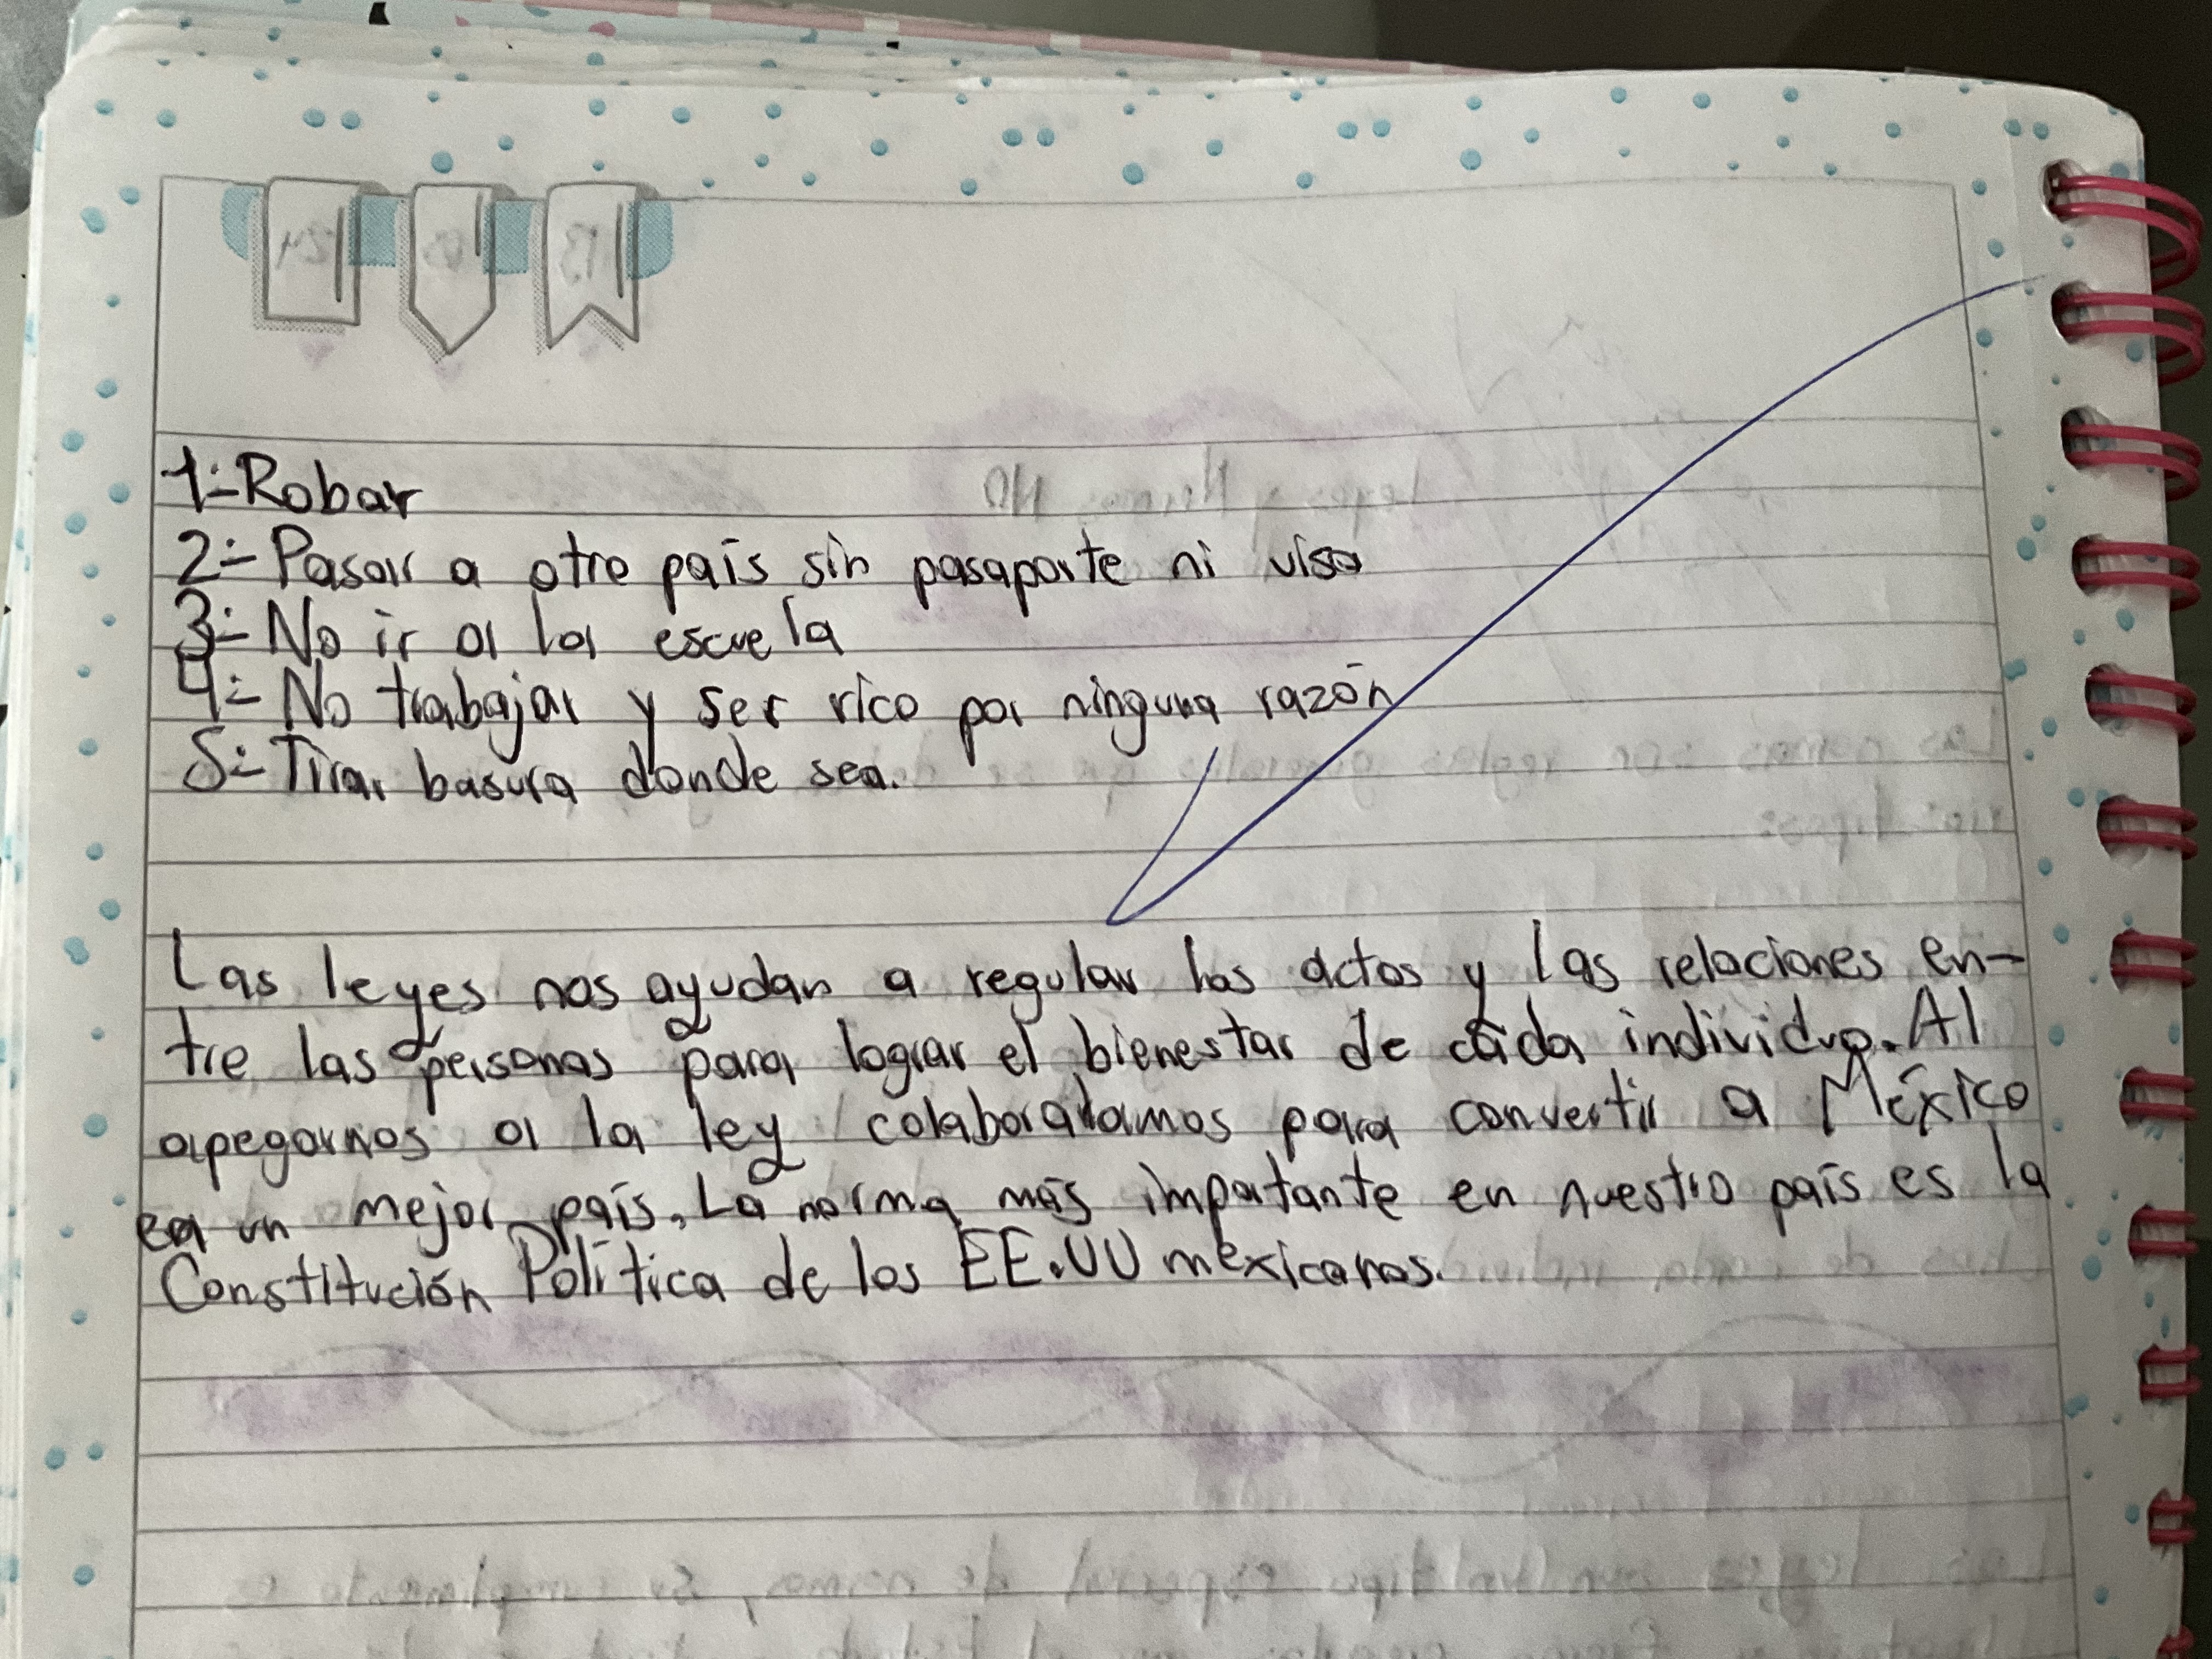 1.- Robar
2.- Pasar a otro país sin pasaporte ni visa
3.- No ir a la escuela
4.- No trabajar y ser rico por ninguna razón
5.- Tirar basura donde sea.
Las leyes nos ayudan a regular los actos y las relaciones en-
tre las personas para lograr el bienestar de cada individuo. Al
apegarnos a la ley colaboramos para convertir a México
en un mejor país. La norma más importante en nuestro país es la
Constitución Política de los EE.UU mexicanos.